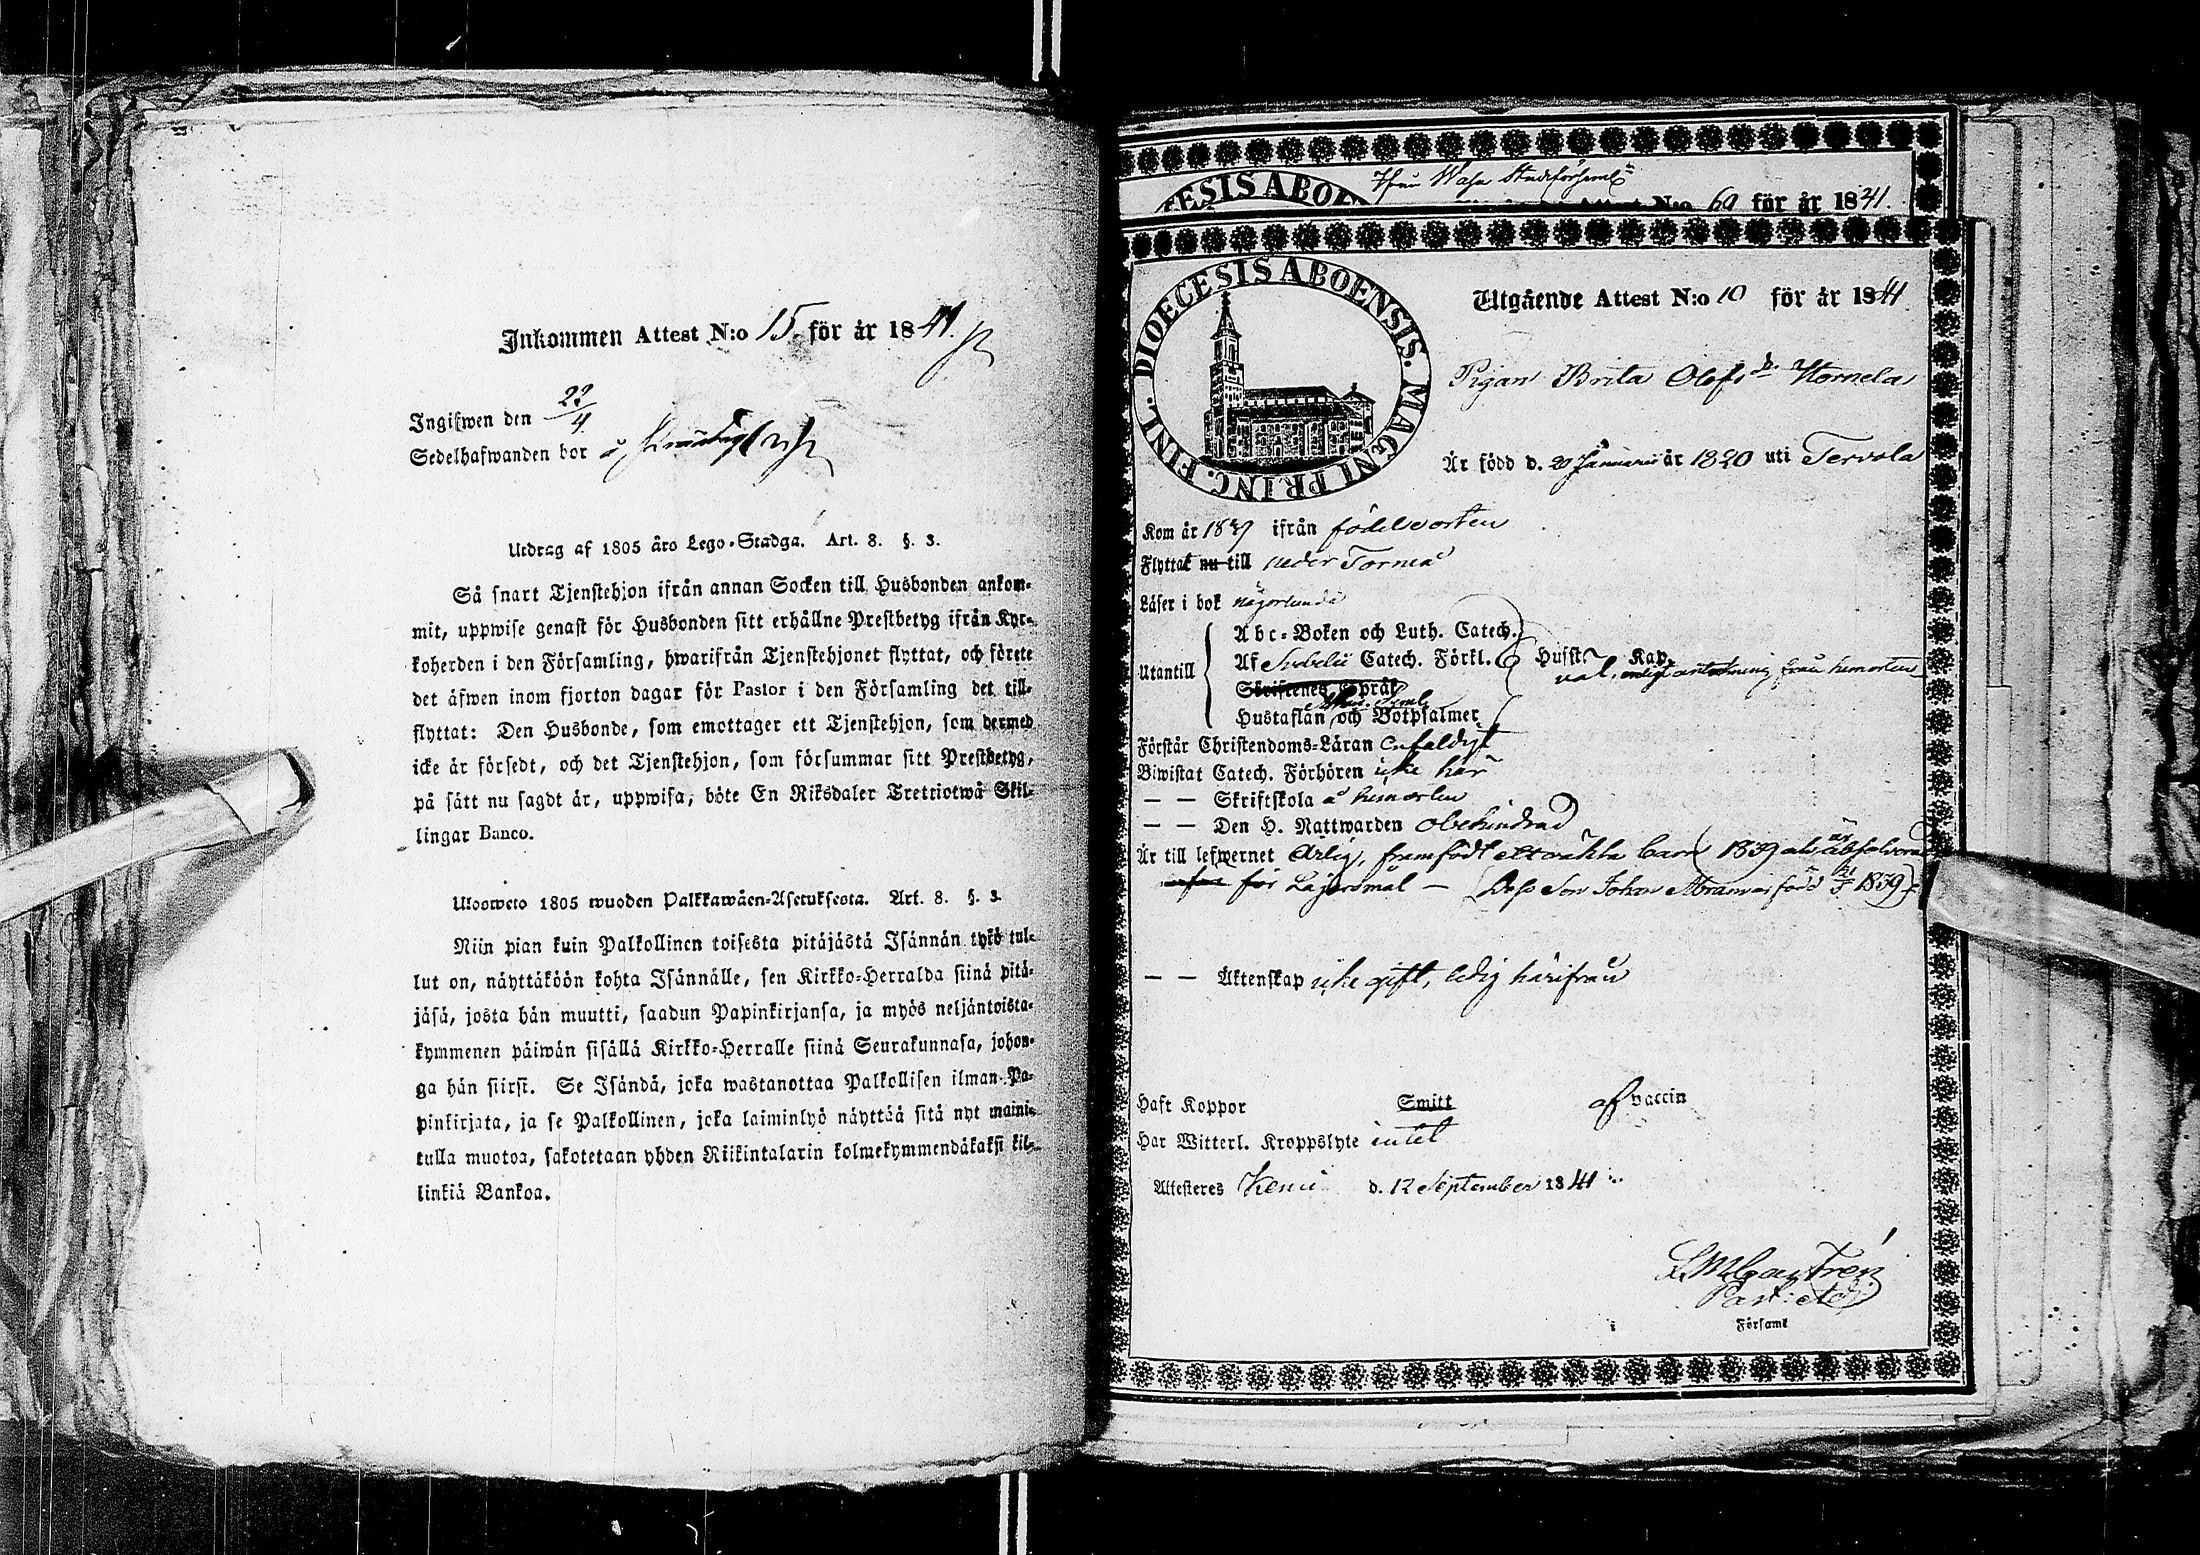 Inkommen Attest N:o 15 för år 1841.
Ingifwen den 22/4
Sedelhafwanden bor å
Utdrag af 1805 års Lego-Stadga. Art. 8. §. 3.
Så snart Tjenstehjon ifrån annan Socken till Husbonden ankom-
mit, uppwise genast för Husbonden sitt erhållne Prestbetyg ifrån Kyr-
koherden i den Församling, hwarifrån Tjenstehjonet flyttat, och förete
det äfwen inom fjorton dagar för Pastor i den Församling det till-
flyttat: Den Husbonde, som emottager ett Tjenstehjon, som dermed
icke är försedt, och det Tjenstehjon, som försummar sitt Prestbetyg,
på sätt nu sagdt är, uppwisa, böte En Riksdaler Trettiotwå Skil-
lingar Banco.
Ulosweto 1805 wuoden Palkkawäen-Asetuksesta. Art. 8. §. 3.
Niin pian kuin Palkollinen toisesta pitäjästä Isännän tykö tul-
lut on, näyttäköön kohta Isännälle, sen Kirkko-Herralda siinä pitä-
jäsä, josta hän muutti, saadun Papinkirjansa, ja myös neljäntoista-
kymmenen päiwän sisällä Kirkko-Herralle siinä Seurakunnasa, johon-
ga hän siirsi. Se Isändä, joka wastanottaa Palkollisen ilman Pa-
pinkirjata, ja se Palkollinen, joka laiminlyö näyttää sitä nyt maini-
tulla muotoa, sakotetaan yhden Riikintalarin kolmekymmendäkaksi kil-
linkiä Bankoa.
Ifrån Wasa Stadsförsaml:
ESIS ABOE
Attest N:o 60 för år 1841.
DIOECESIS ABOENSIS. MAGNI PRINC. FINL.
Utgående Attest N:o 10 för år 1841
Pigan Brita Olofsdr Hornela
Är född d. 20 Januarii år 1820 uti Tervola
Kom år 1839 ifrån födelseorten
Flyttat nu till neder Torneå
Läser i bok någorlunda
Utantill
Abc-Boken och Luth. Catech.
Af Svebelii Catech. Förkl. Husst. Kap.
väl, enligt anteckning från hemorten
Skriftenes Språk
Hustaflan och Botpsalmer
Förstår Christendoms-Läran enfaldigt
Biwistat Catech. Förhören icke här
— — Skriftskola å hemorten
— — Den H. Nattwarden obehindrad
Är till lefwernet Ärlig, framfödt ett oäkta barn 1839 och är absolverad
för Lägersmål — (Dess Son Johan Abram är född 1839).
— — Äktenskap icke gift, ledig härifrån
Haft Koppor Smitt af vaccin
Har Witterl. Kroppslyte intet
Attesteres Kemi d. 12 September 1841
Past: et
Församl